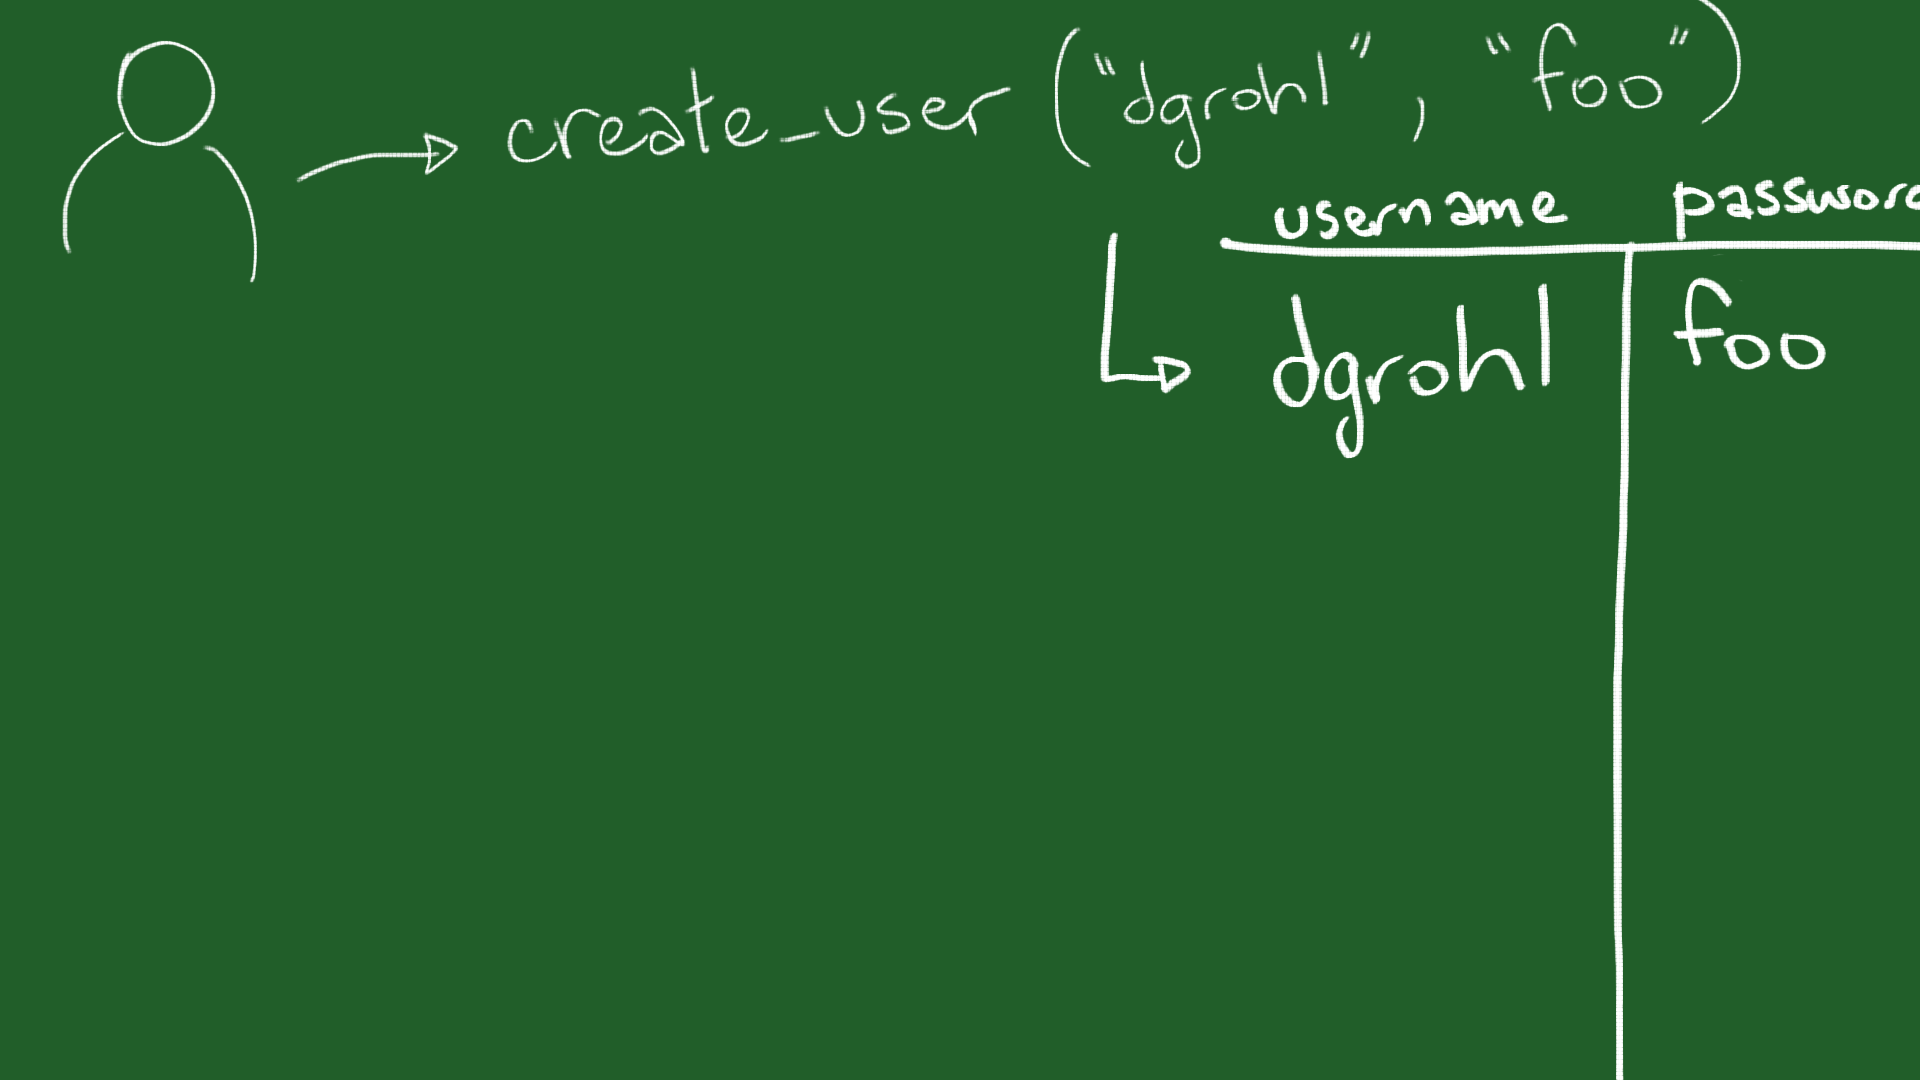 create_user ("dgrohl", "foo")
username password
dgrohl foo